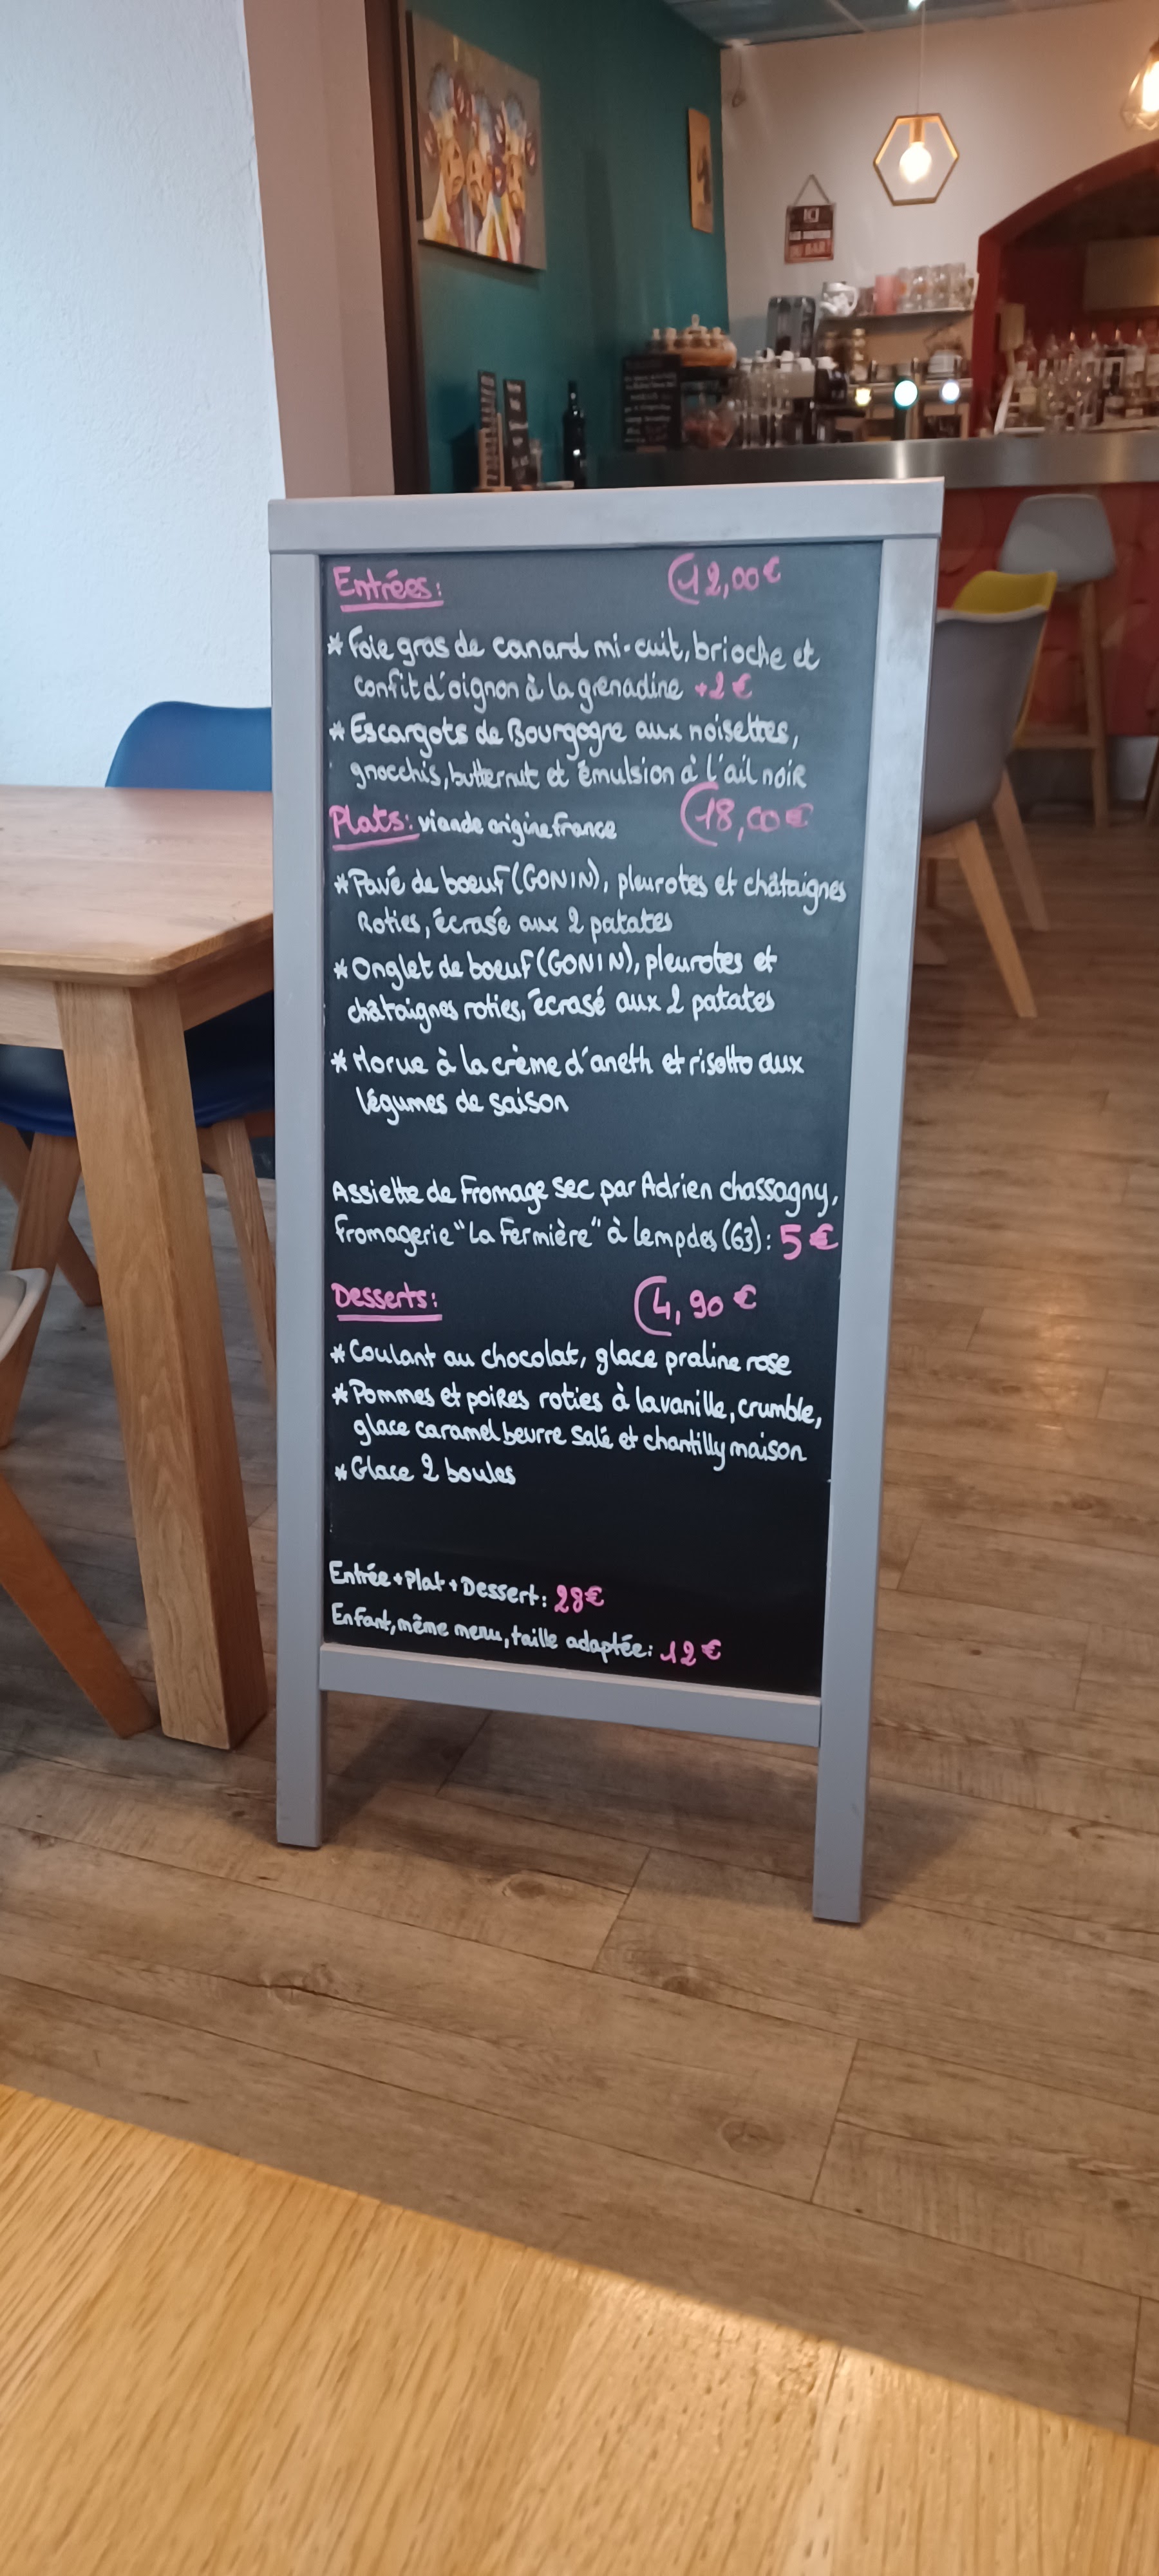 Entrées: 12,00€
* Foie gras de canard mi-cuit, brioche et
confit d'oignon à la grenadine +2€
* Escargots de Bourgogne aux noisettes,
gnocchis, butternut et émulsion à l'ail noir
Plats: viande origine France 18,00€
* Pavé de boeuf (GONIN), pleurotes et châtaignes
Roties, écrasé aux 2 patates
* Onglet de boeuf (GONIN), pleurotes et
châtaignes roties, écrasé aux 2 patates
* Morue à la crème d'aneth et risotto aux
légumes de saison
Assiette de Fromage sec par Adrien chassagny,
fromagerie "La Fermière" à lempdes (63): 5€
Desserts: 4,90€
* Coulant au chocolat, glace praline rose
* Pommes et poires roties à la vanille, crumble,
glace caramel beurre salé et chantilly maison
* Glace 2 boules
Entrée+Plat+Dessert: 28€
Enfant, même menu, taille adaptée: 12€
ICI